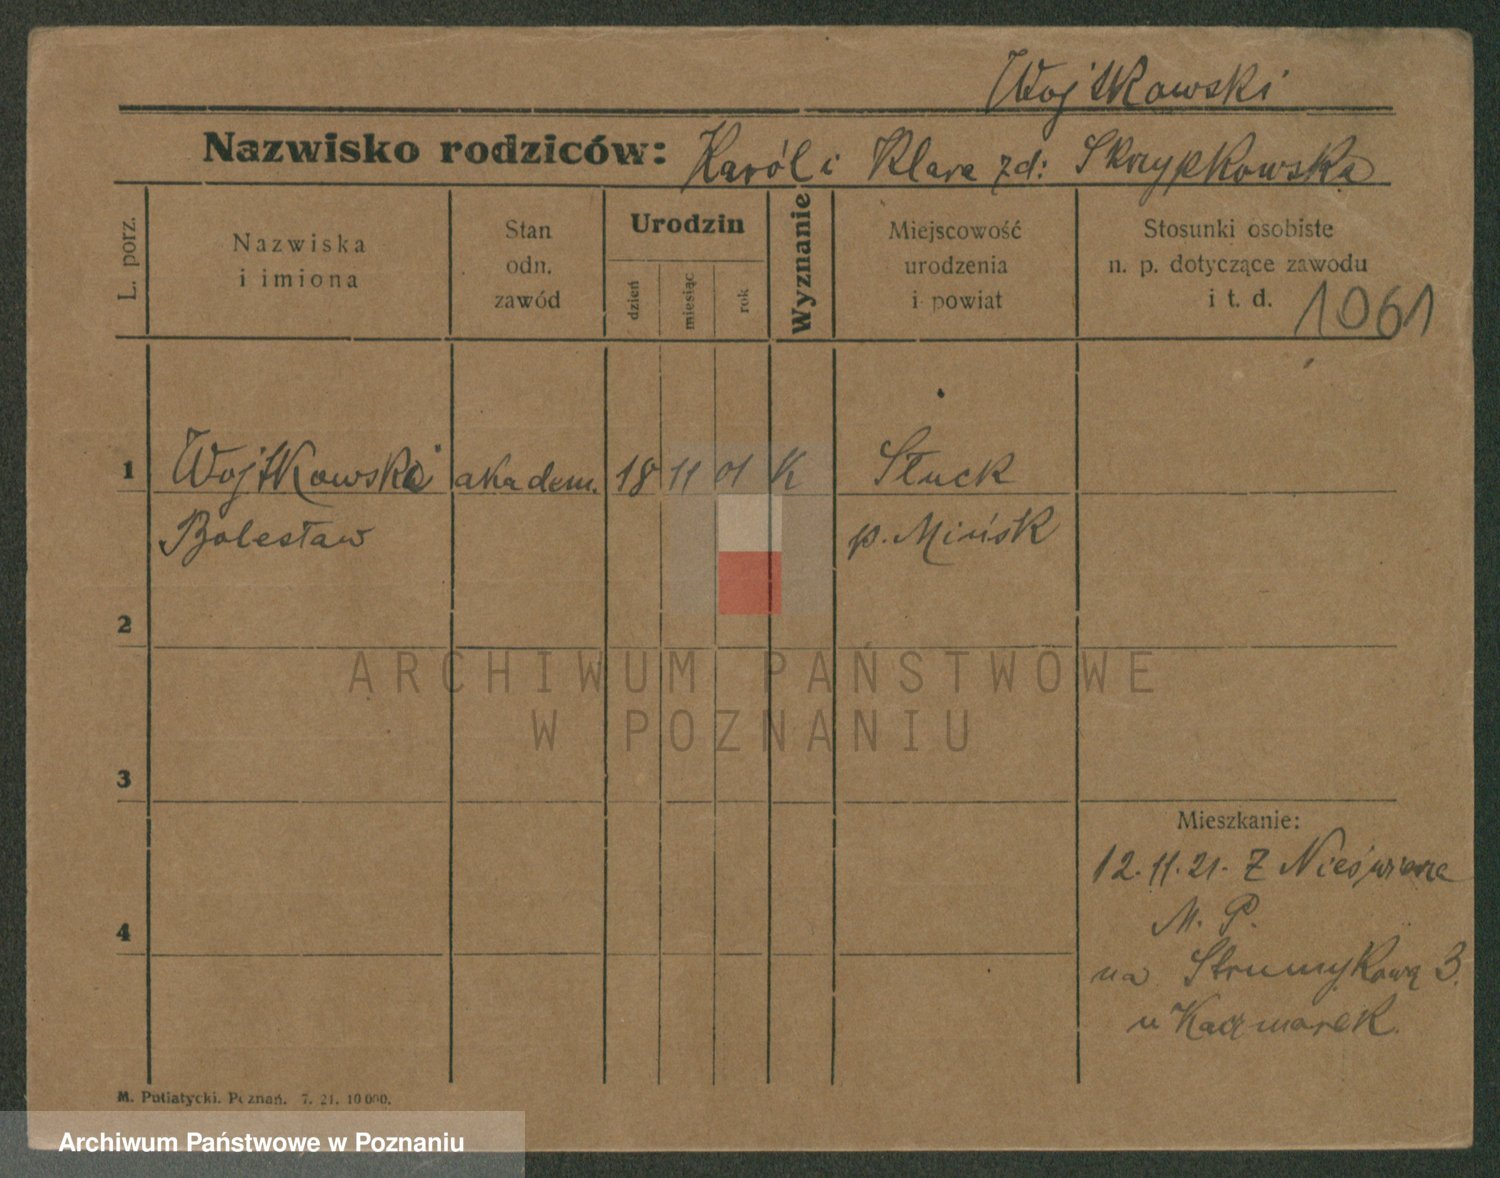 Wojtkowski
Nazwisko rodziców: Karól i Klara zd: Skrzypkowska
L. porz.
Nazwiska
i imiona
Stan
odn.
zawód
Urodzin
dzień
miesiąc
rok
Wyznanie
Miejscowość
urodzenia
i powiat
Stosunki osobiste
n. p. dotyczące zawodu
i t. d. 1061
1 Wojtkowski akadem. 18 11 01 K Słuck
Bolesław p. Mińsk
2
3
4
Mieszkanie:
12.11.21. Z Nieświeża
M. P.
na Strumykową 3.
u Kaczmarek.
M. Putiatycki. Poznań. 7. 21. 10 000.
ARCHIWUM PAŃSTWOWE
W POZNANIU
Archiwum Państwowe w Poznaniu